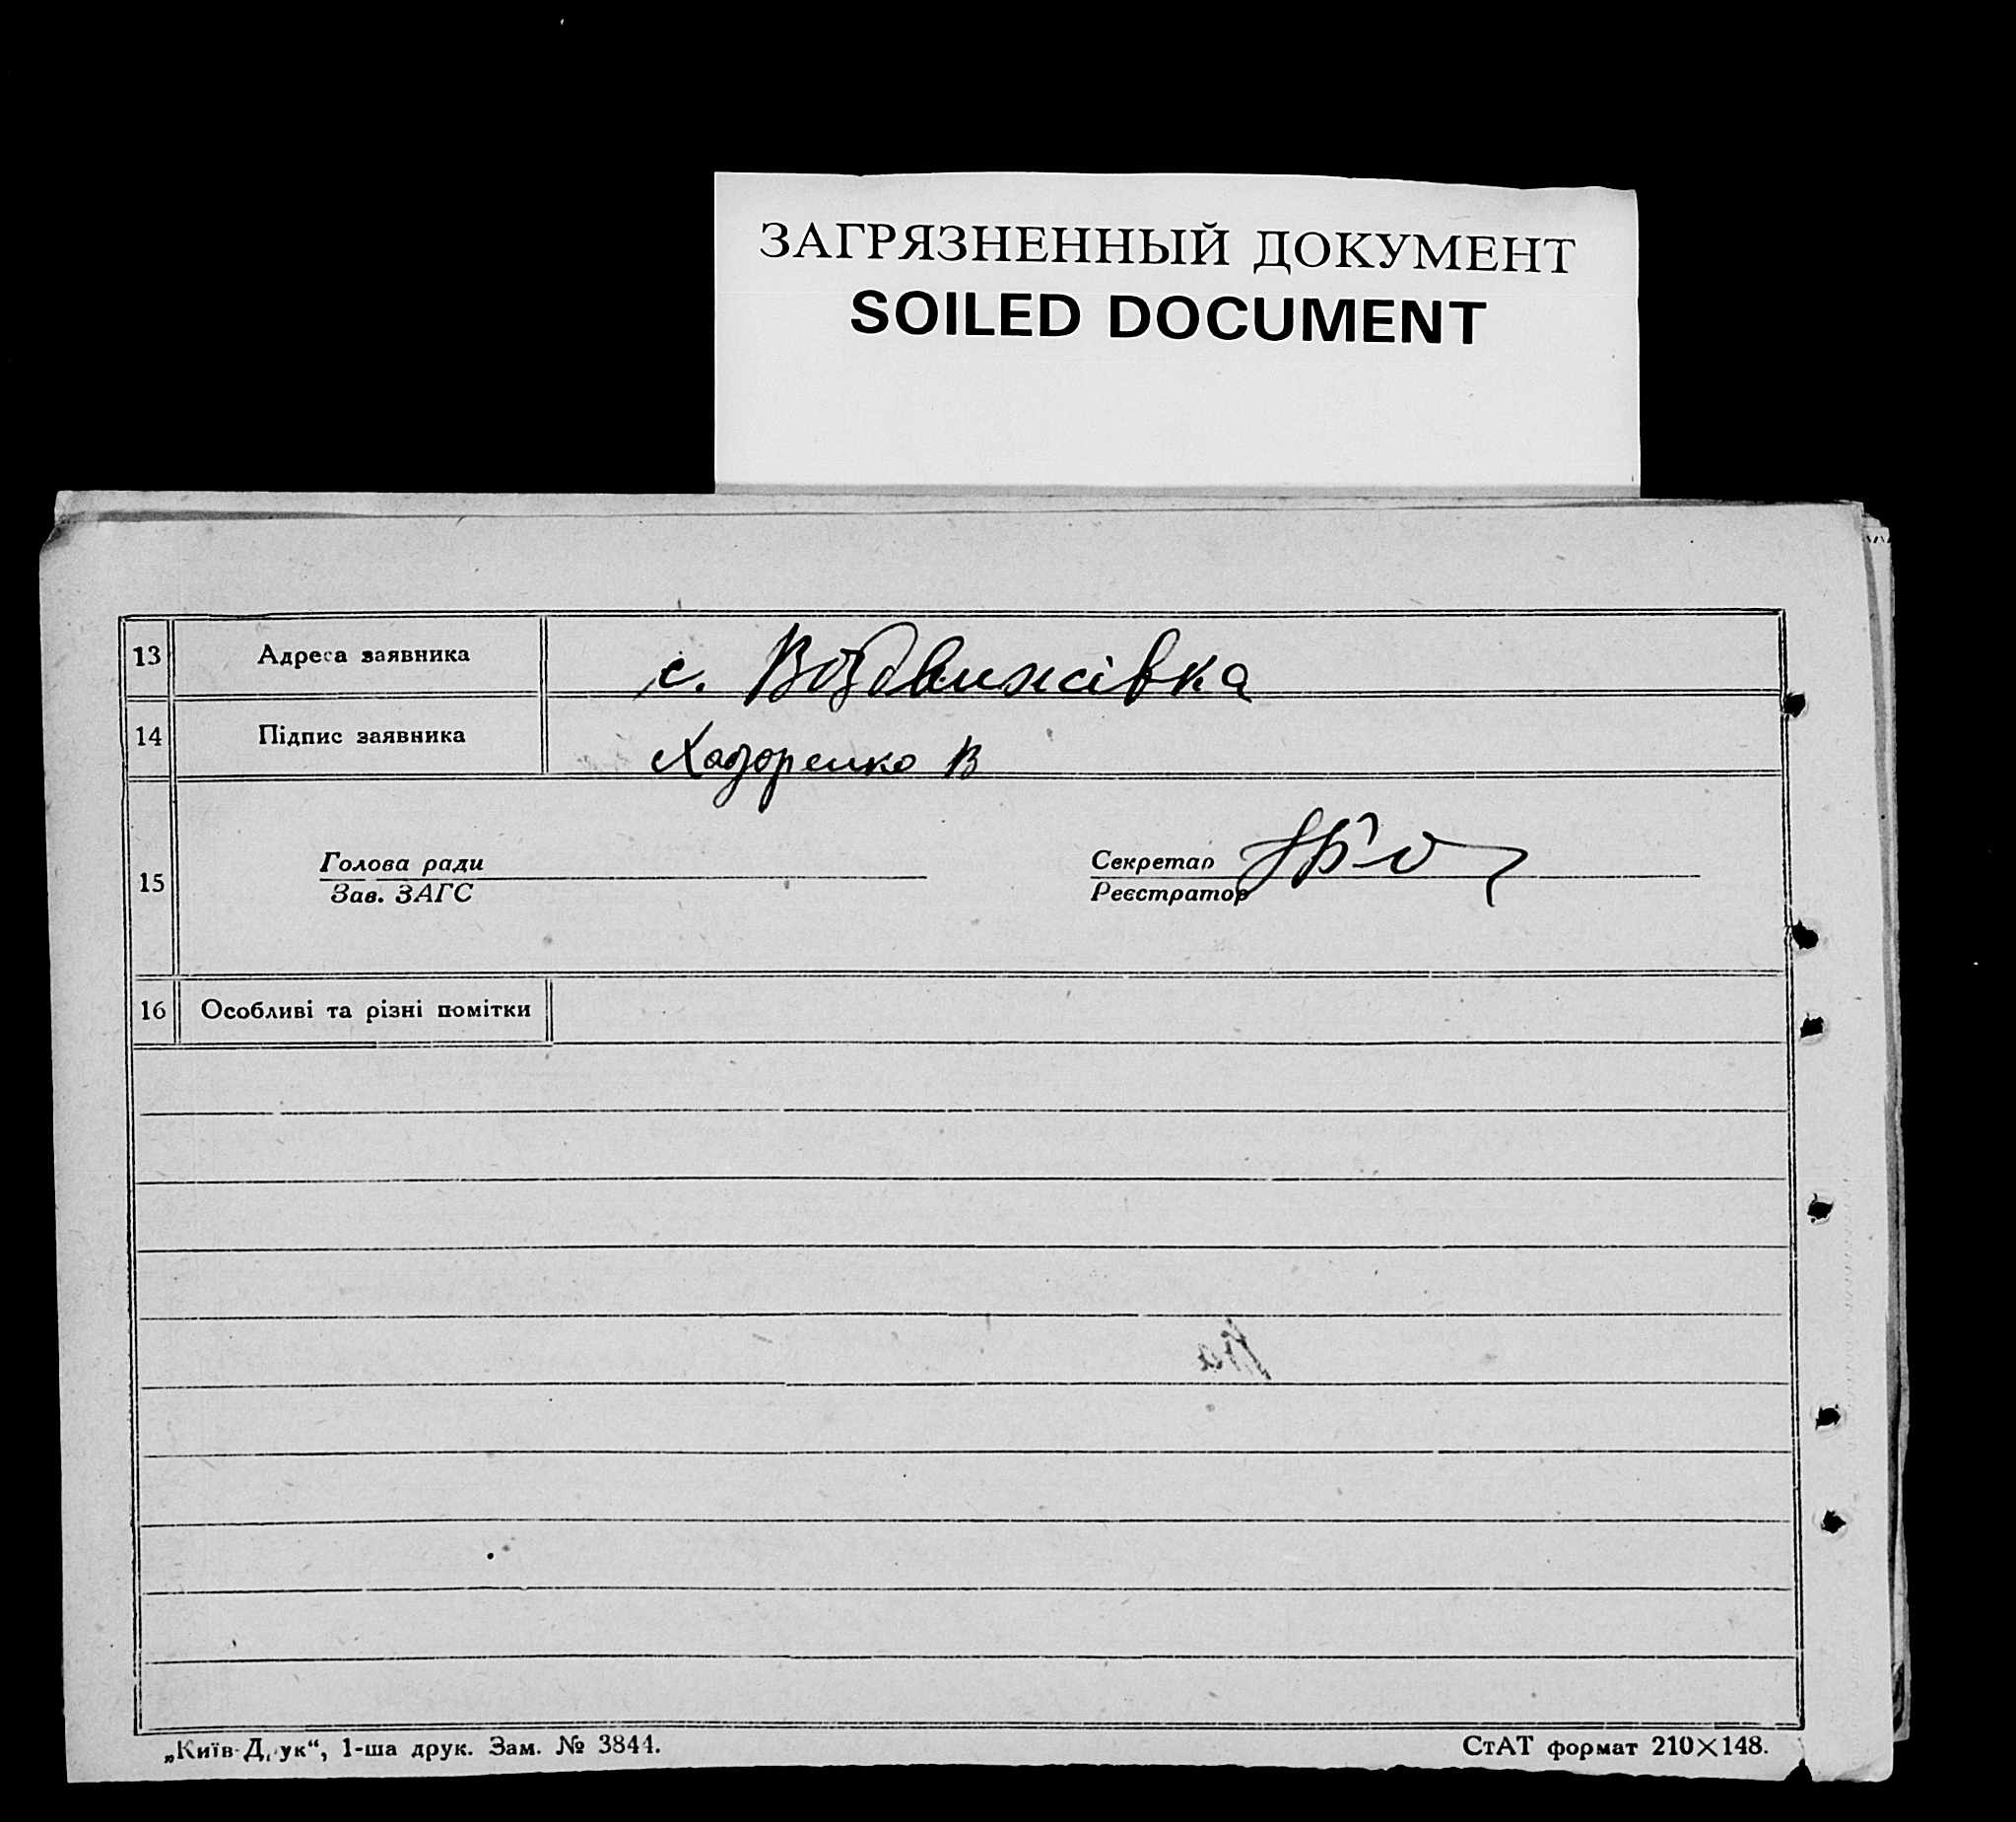 ЗАГРЯЗНЕННЫЙ ДОКУМЕНТ
SOILED DOCUMENT
13 Адреса заявника с. Воздвижівка
14 Підпис заявника Ходоренко В
15 Голова ради Секретар
Зав. ЗАГС Реєстратор
16 Особливі та різні помітки
„Київ-Друк“, 1-ша друк. Зам. № 3844. СтАТ формат 210×148.